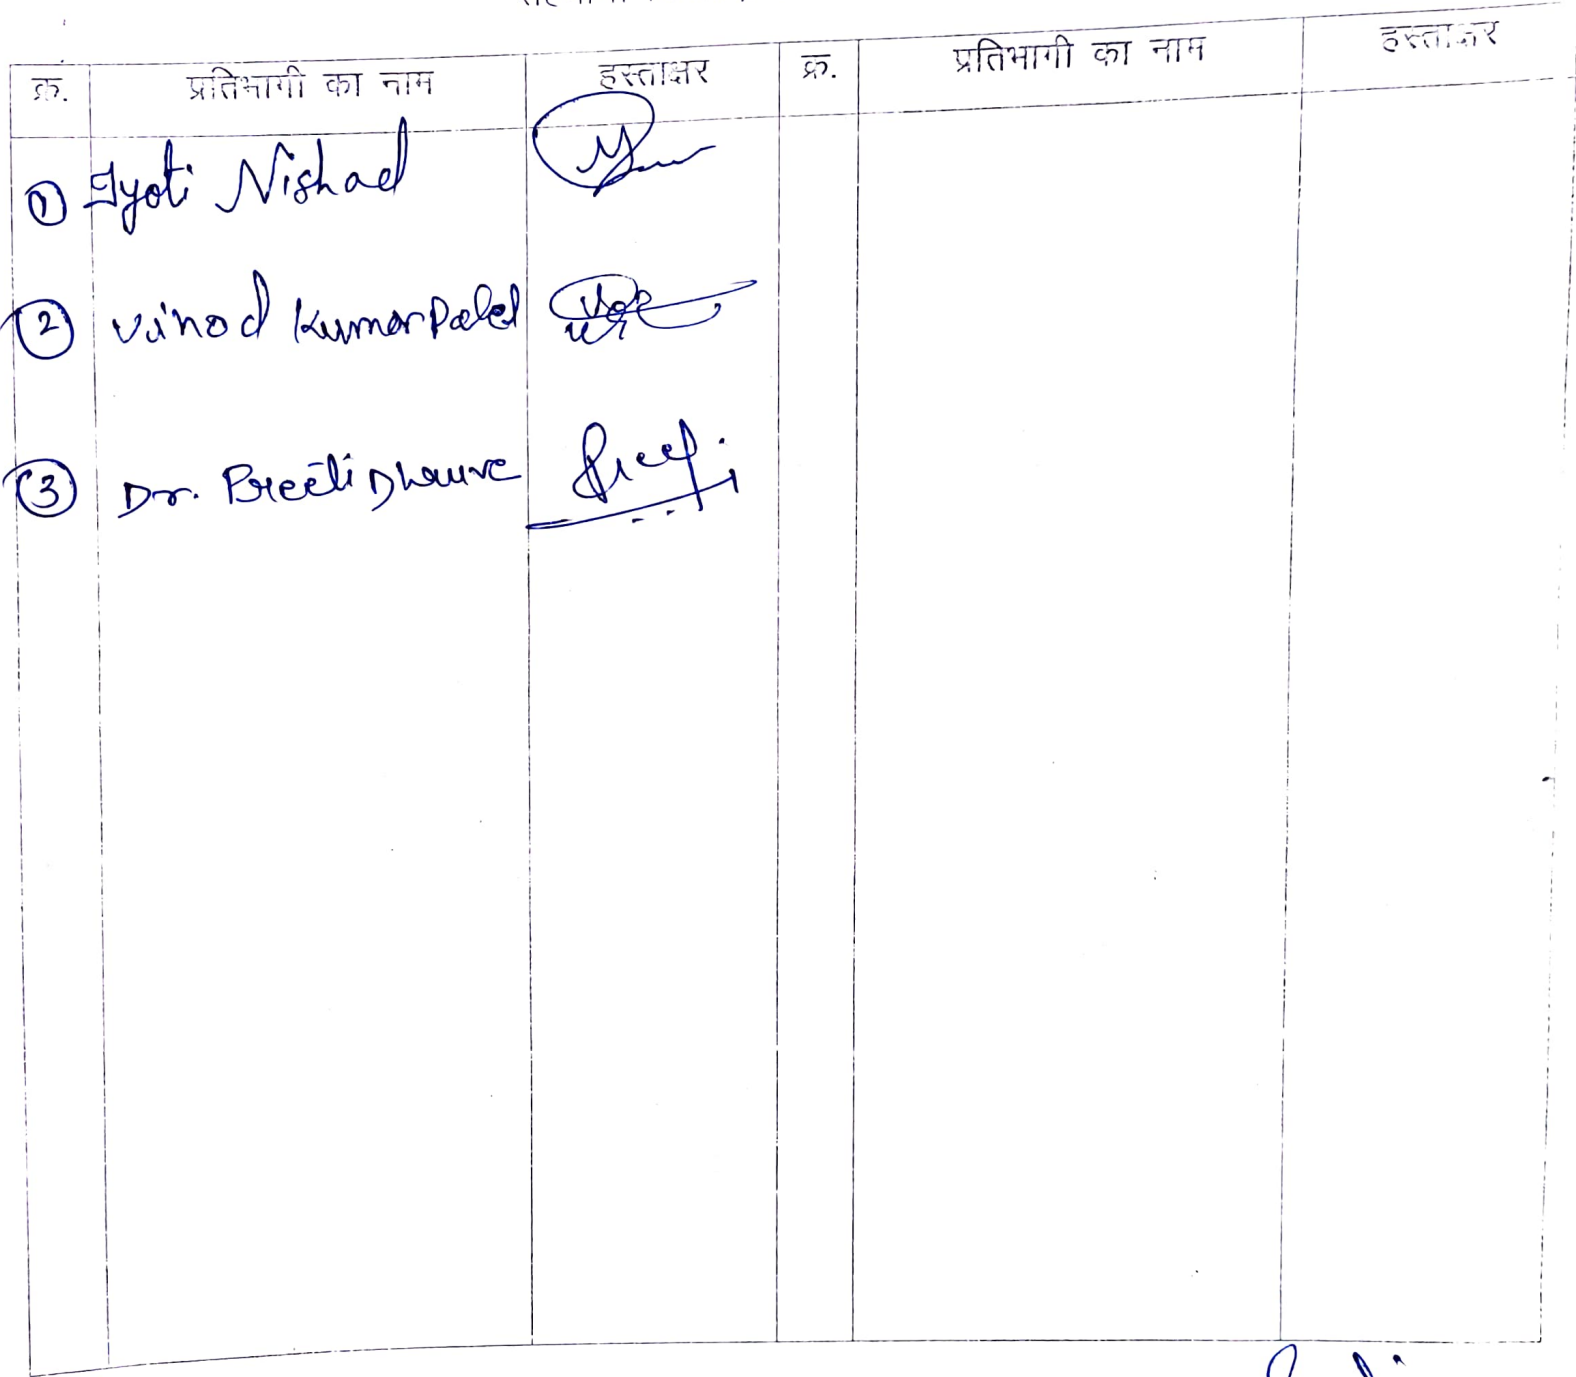 क्र. प्रतिभागी का नाम हस्ताक्षर क्र. प्रतिभागी का नाम हस्ताक्षर
① Jyoti Nishad
② Vinod Kumar Patel
③ Dr. Preeti Dhurve Preeti